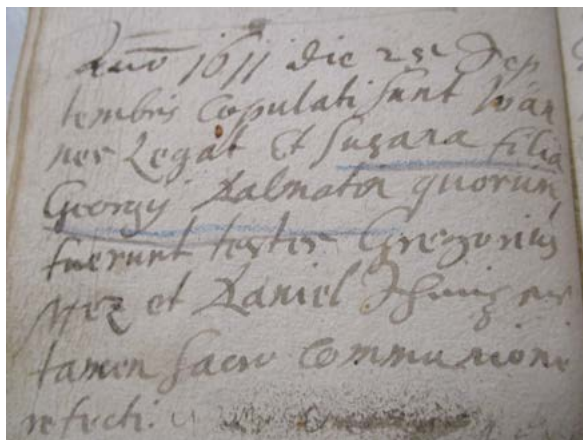 Año 1611 die 25 Sep
tembris copulati sunt Ioan
nes Legat et Susana filia
Georgÿ Dalmatæ quorum
fuerunt testes Gregorius
et Daniel
tamen sacro communione
refecti.